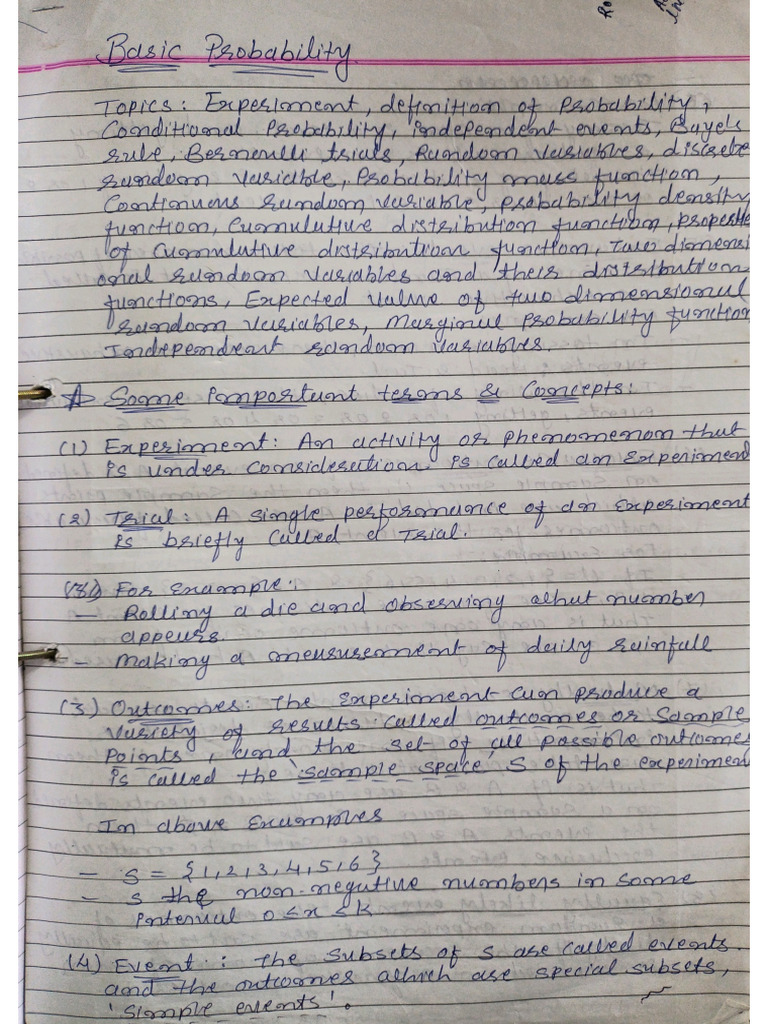 Basic Probability
Topics: Experiment, definition of Probability,
Conditional Probability, independent events, Baye's
rule, Bernoulli trials, Random variables, discrete
random variable, Probability mass function,
Continuous random variable, probability density
function, Cumulative distribution function, Properties
of Cumulative distribution function, Two dimensi
onal random variables and their distribution
functions, Expected value of two dimensional
random variables, Marginal Probability function
Independent random variables.
Some Important terms & Concepts:
(1) Experiment: An activity or phenomenon that
is under consideration is called an experiment
(2) Trial: A single performance of an experiment
is briefly called a Trial.
For example:
- Rolling a die and observing what number
appears.
- Making a measurement of daily rainfall
(3) Outcomes: the experiment can produce a
variety of results called outcomes or sample
points, and the set of all possible outcomes
is called the 'sample space S of the experiment
In above examples
- S = {1,2,3,4,5,6}
- S the non-negative numbers in some
interval 0 ≤ x ≤ k
(4) Event: the subsets of S are called events.
and the outcomes which are special subsets,
'simple events'.